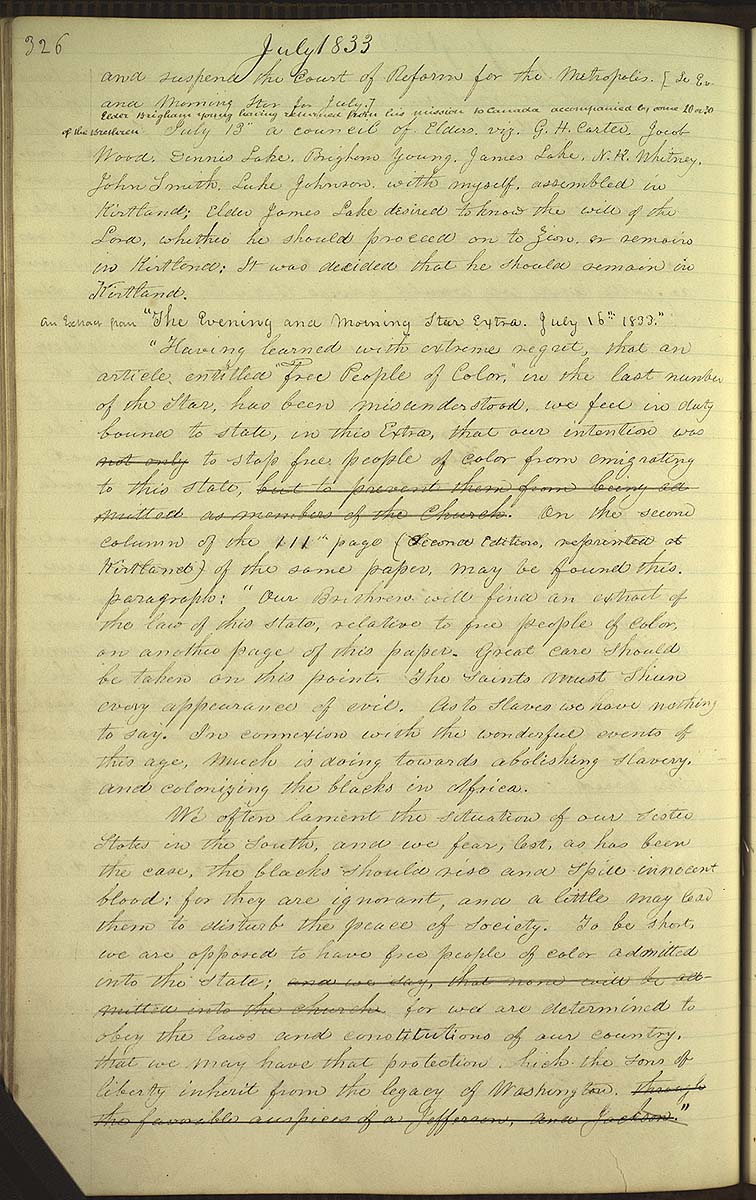 326 July 1833
and suspend the Court of Reform for the Metropolis. [Se Ev.
and Morning Star for July.]
Elder Brigham Young having returned from his mission to Canada accompanied by some 20 or 30
of the Brethren July 13th a council of Elders, viz. G. H. Carter, Jacob
Wood, Dennis Lake, Brigham Young, James Lake, N. K. Whitney,
John Smith, Luke Johnson, with myself, assembled in
Kirtland; Elder James Lake desired to know the will of the
Lord, whether he should proceed on to Zion, or remain
in Kirtland; It was decided that he should remain in
Kirtland.
An Extract from "The Evening and Morning Star Extra. July 16th 1833."
"Having learned with extreme regret, that an
article entitled "Free People of Color," in the last number
of the Star, has been misunderstood, we feel in duty
bound to state, in this Extra, that our intention was
not only to stop free people of color from emigrating
to this state, but to prevent them from being ad
mitted as members of the Church. On the second
column of the 111th page (Second Edition, reprinted at
Kirtland) of the same paper, may be found this
paragraph: "Our Brethren will find an extract of
the law of this state, relative to free people of color,
on another page of this paper. Great care should
be taken on this point. The Saints must Shun
every appearance of evil. As to slaves we have nothing
to say. In connexion with the wonderful events of
this age, Much is doing towards abolishing slavery,
and colonizing the blacks in Africa.
We often lament the situation of our Sister
States in the South, and we fear, lest, as has been
the case, the blacks should rise and spill innocent
blood: for they are ignorant, and a little may lead
them to disturb the peace of Society. To be short,
we are opposed to have free people of color admitted
into the State; and we say, that none will be ad-
mitted into the church for we are determined to
obey the laws and constitutions of our country,
that we may have that protection hich the sons of
liberty inherit from the legacy of Washington, through
the favorible auspices of a Jefferson, and Jackson."